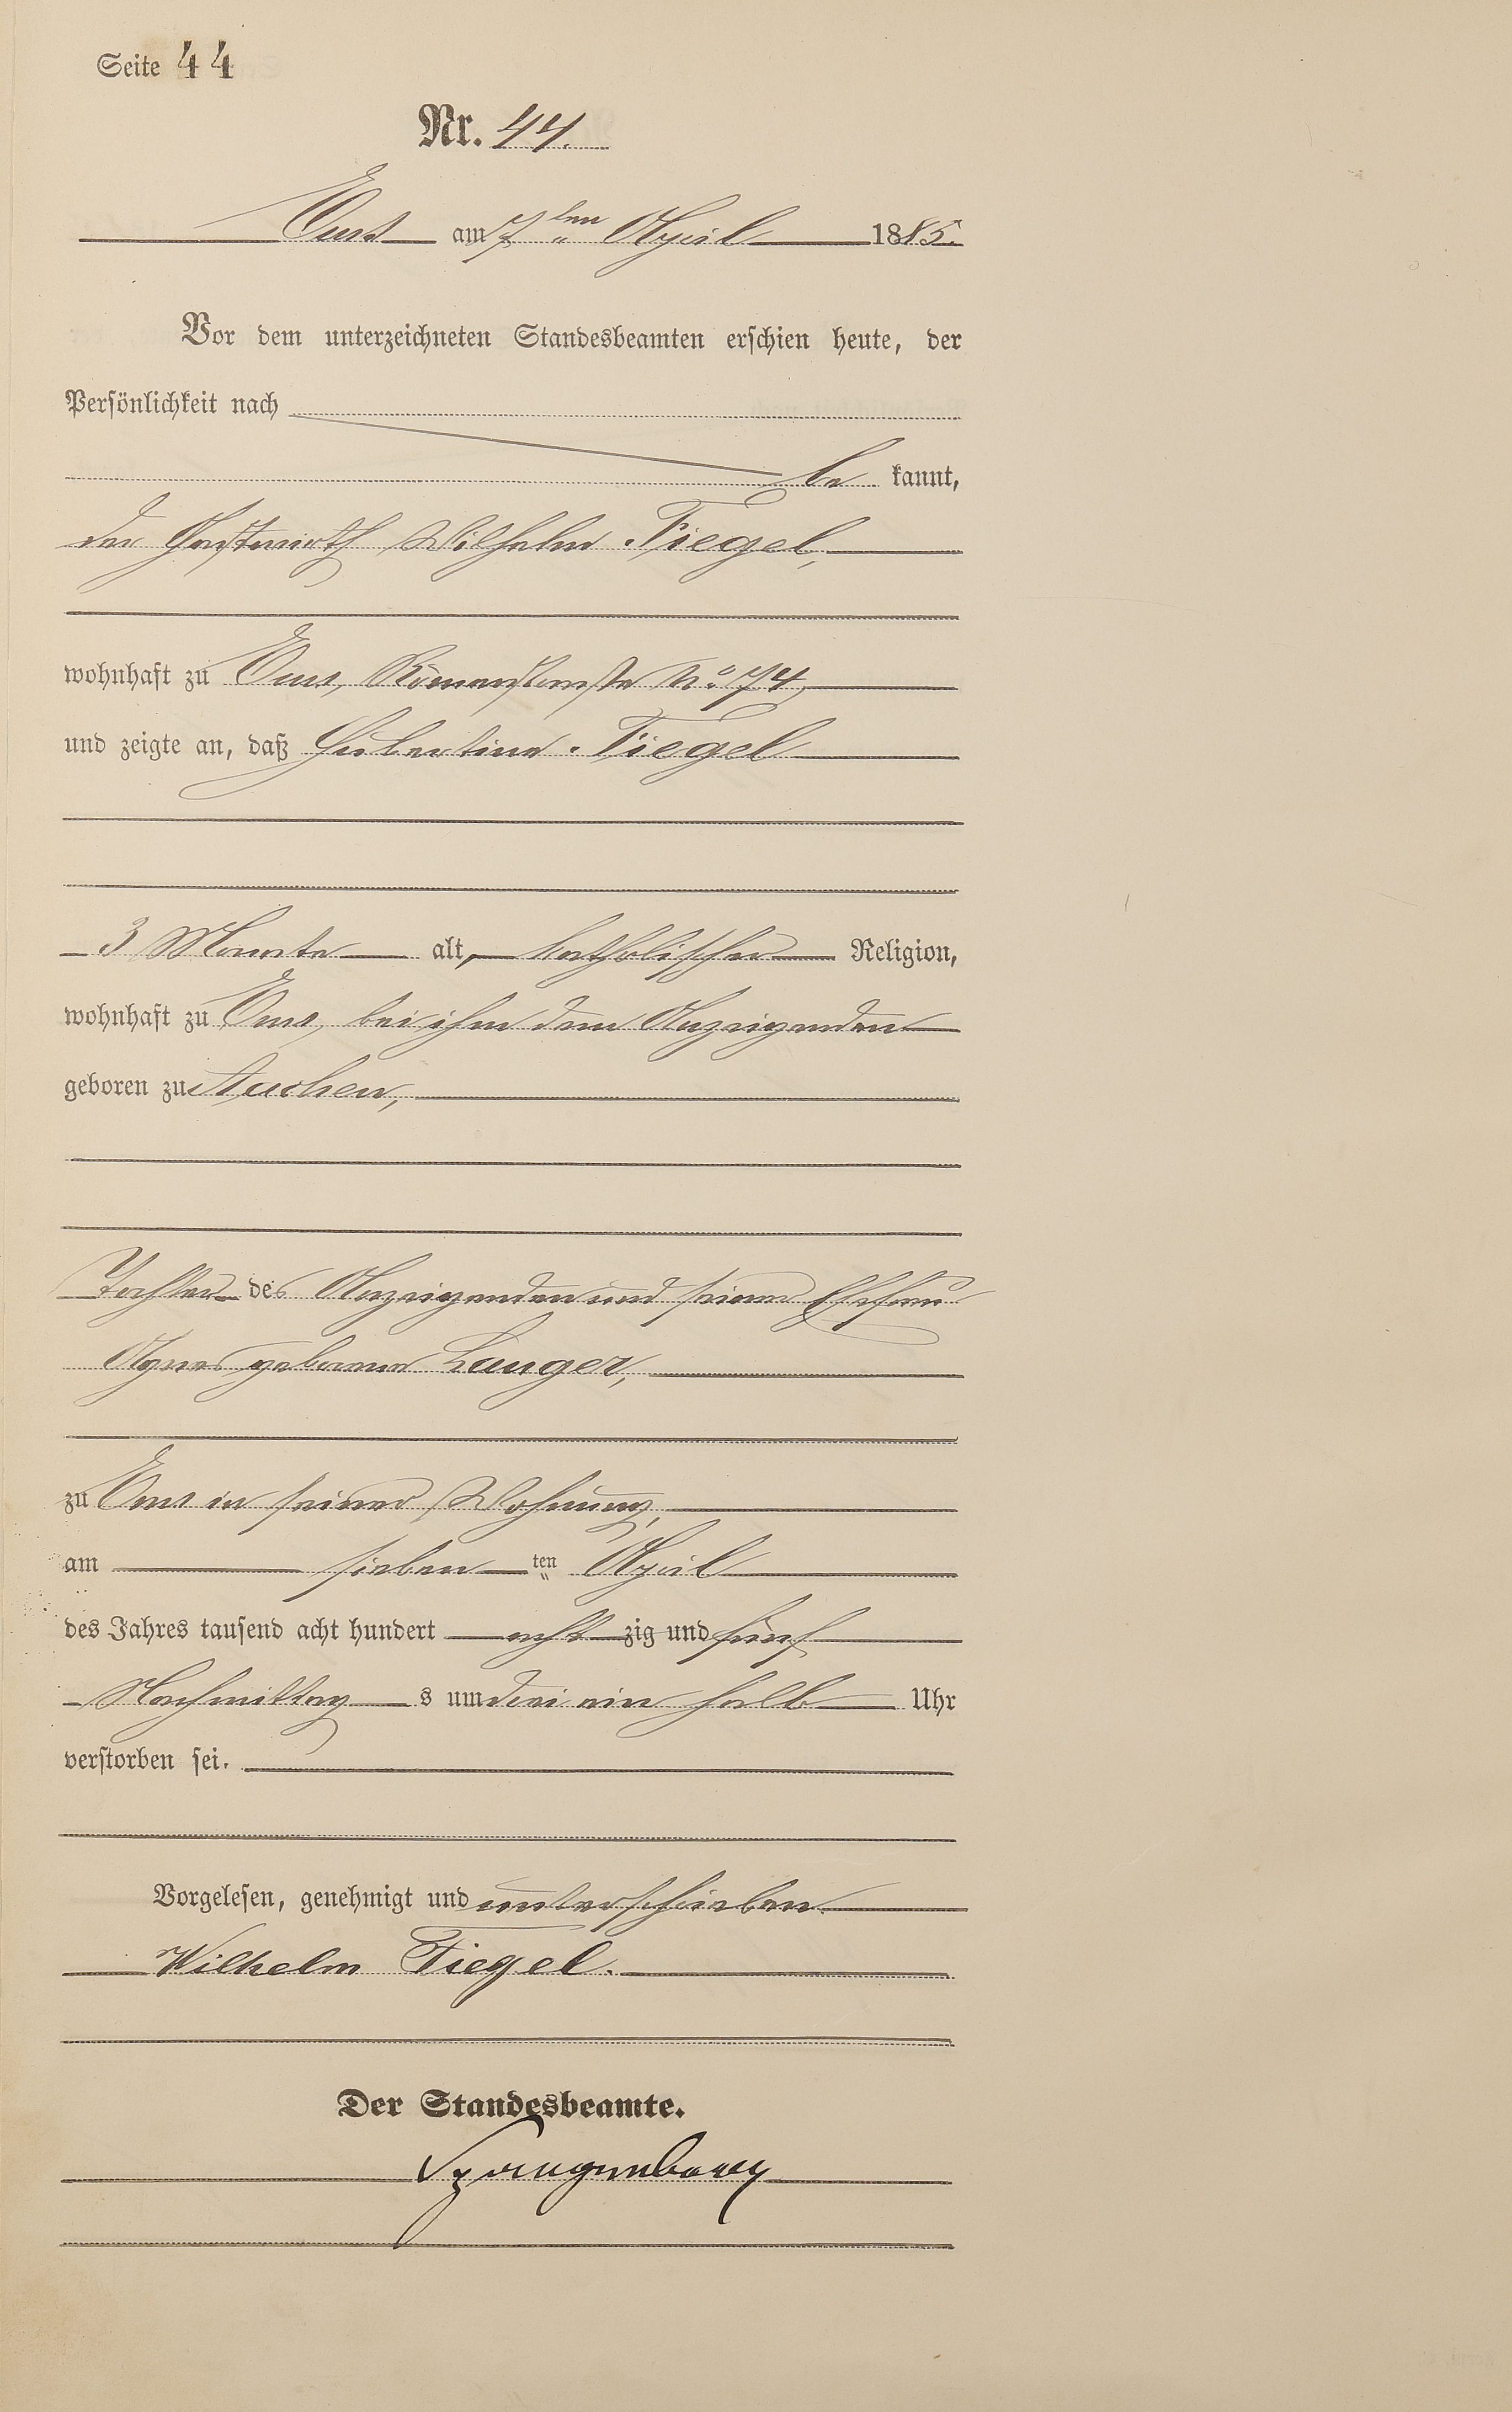 Seite 44
Nr. 44.
Ems am 7ten April 1885.
Vor dem unterzeichneten Standesbeamten erschien heute, der
Persönlichkeit nach
be kannt,
der Gastwirth Wilhelm Tiegel,
wohnhaft zu Ems, Römerstraße No. 74,
und zeigte an, daß Hubertine Tiegel
3 Monate alt, katholischer Religion,
wohnhaft zu Ems, bei ihm dem Anzeigenden
geboren zu Aachen,
Tochter des Anzeigenden und seiner Ehefrau
Agnes geborene Langer,
zu Ems in seiner Wohnung,
am sieben ten April
des Jahres tausend acht hundert acht zig und fünf
Nachmittag s um drei ein halb Uhr
verstorben sei.
Vorgelesen, genehmigt und unterschrieben.
Wilhelm Tiegel.
Der Standesbeamte.
Spangenberg